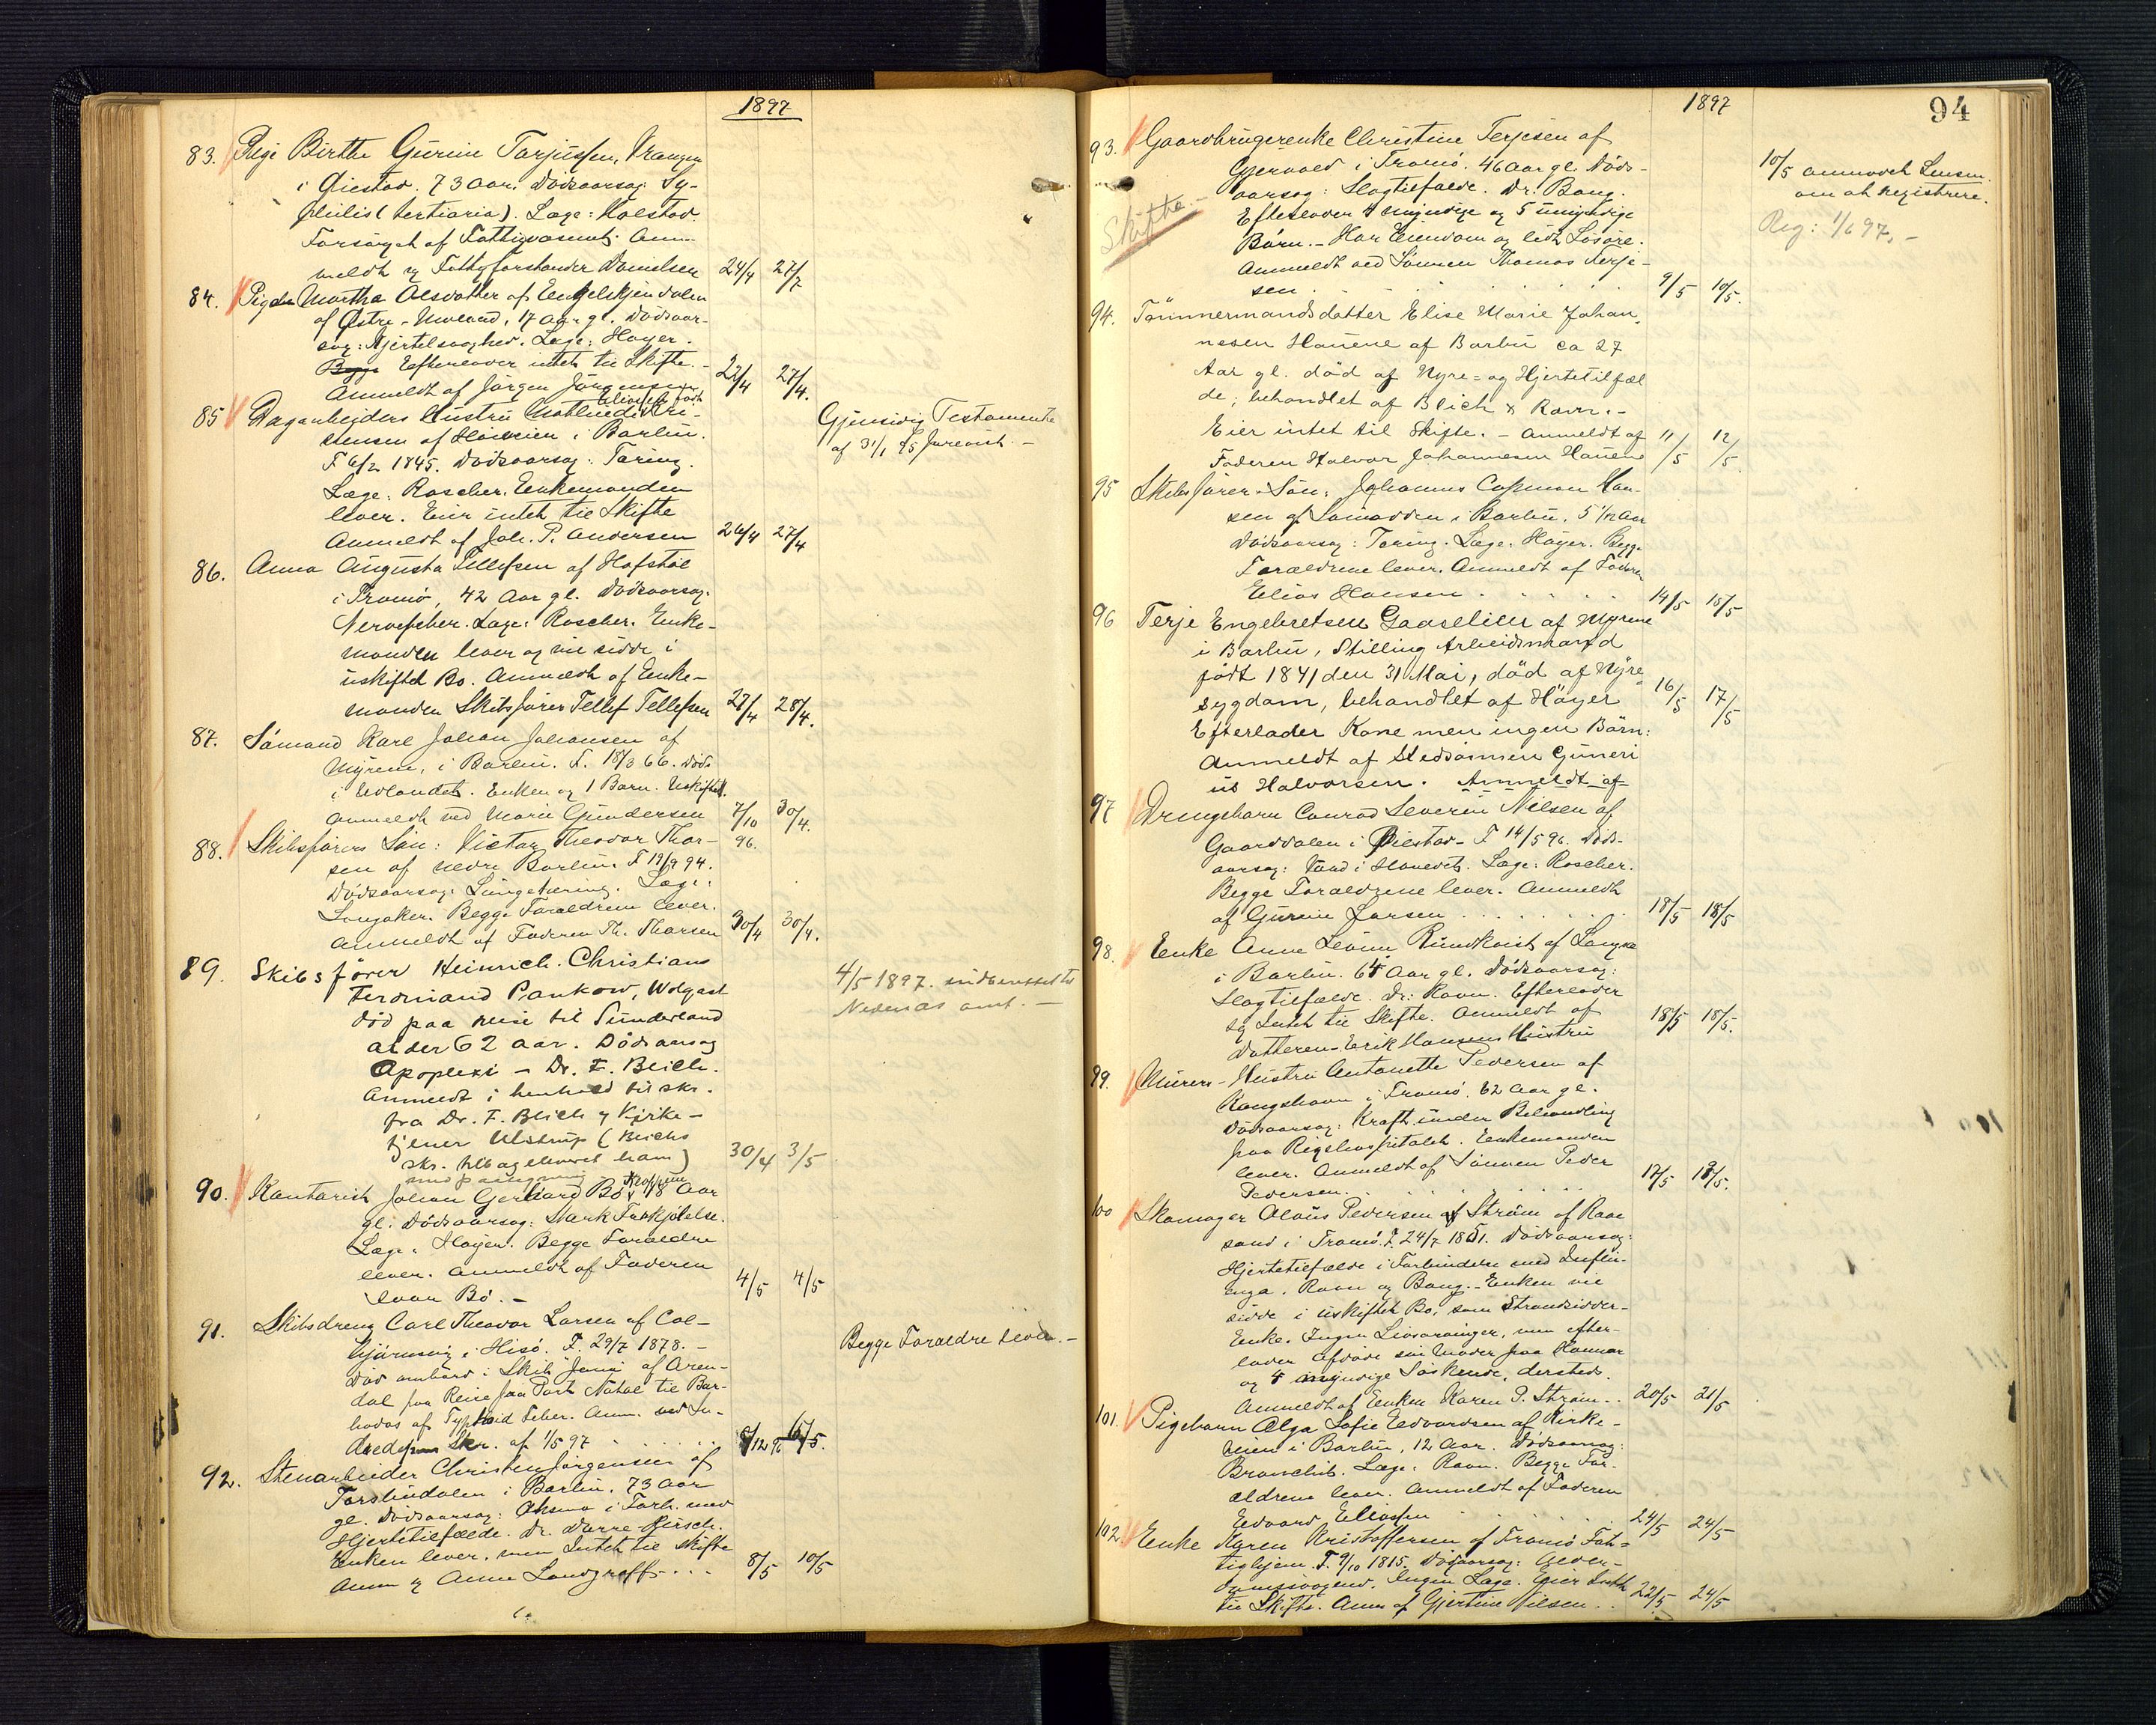 1897
83. Pige Birthe Gurine Tarjussen, Vrangen
i Øiestad. 73 Aar. Dödsaarsag: Sy-
philis (tertiaria). Læge: Kolstad
Forsörget af Fattigvæsenet. An-
meldt af Fattigforstander Danielsen 24/4 27/7
84. Pigen Martha Olsdatter af Engelskjöndalen
af Østre-Moland, 17 Aar gl. Dödsaar-
sag: Hjertesvaghed. Læge: Høyer.
Begge Efterlader intet til Skifte.- 22/4 27/4.
Anmeldt af Jörgen Jörgensen
85 Dagarbeiders Hustru Mathilde Kri-
stensen af Höiveien i Barbu.
F 6/2 1845. Dödsaarsag: Tæring.
Læge: Roscher. Enkemanden
lever. Eier intet til Skifte
Anmeldt af Joh. P. Andersen 26/4 27/4
Gjensidig Testamente
af 31/1 85 forevist. -
86. Anna Augusta Tellefsen af Hofstöl
i Tromö, 42 Aar gl. Dödsaarsag:
Nervefeber. Læge: Roscher. Enke-
manden lever og vil sidde i
uskiftet Bo. Anmeldt af Enke-
manden Skibsförer Tellef Tellefsen 27/4 28/4.
87. Sömand Karl Johan Johansen af
Myrene, i Barbu. F. 18/3 66. död
i Udlandet. Enken og 1 Barn. Uskiftet.
Anmeldt ved Marie Gundersen 7/10 96. 30/4.
88. Skibsförers Sön: Victor Theodor Thor-
sen af nedre Barbu. F 19/9 94.
Dödsaarsag: Lungetæring. Læge:
Longaker. Begge Forældrene lever.
Anmeldt af Faderen Th. Thorsen 30/4 30/4.
89. Skibsförer Heinrich Christians
Ferdinand Pankow, Wolgast
död paa reise til Sunderland
alder 62 aar. Dödsaarsag
Apoplexi - Dr. F. Blich.
Anmeldt i henhold til skr.
fra Dr. F. Blich & Kirke-
tjener Ulstrup (Blichs
skr. tilbageleveret ham) 30/4 3/5
4/5 1897. indberettet til
Nedenæs amt. -
90. Kontorist Johan Gerhard Bö, 18 Aar
gl. Dödsaarsag: Stærk Forkjölelse.
Læge: Høyer. Begge Forældre
lever. Anmeldt af Faderen 4/5 4/5
Iver Bö. -
91. Skibsdreng Carl Theodor Larsen af Col-
björnsvig i Hisö. F. 29/7 1878. -
Död ombord i Skib af Aren-
dal paa Reise fra Port Natal til Bar-
bados af Typhoid Feber. Anm. ved In-
Skr. af 1/5 97 8/12 96 6/5.
Begge Forældre lever. -
92. Stenarbeider Christen Jörgensen af
Torsbudalen i Barbu, 73 Aar
gl. Dödsaarsag: Astma i Forb. med
Hjertetilfælde. Dr. Darre Hirsch.
Enken lever, men Intet til Skifte
Anm af Anne Landgraff. . . 8/5 10/5
1897
94
93. Gaardbrugerenke Christine Terjesen af
Gjervold i Tromö. 46 Aar gl. Döds-
aarsag: Slagtilfælde. Dr. Bang.
Skifte. -
Efterlader 4 myndige og 5 umyndige
Börn. - Har Eiendom og lidt Lösöre.
Anmeldt ved Sönnen Thomas Terje-
sen . . . . . . 9/5 10/5.
10/5 anmodet Lensm.
om at registrere.
Reg: 1/6 97, -
94. Tömmermandsdatter Elise Marie Johan-
nesen Hauene af Barbu ca 27
Aar gl. död af Nyre- og Hjertetilfæl
de; behandlet af Blich & Ravn. -
Eier intet til Skifte. - Anmeldt af 11/5 12/5
Faderen Halvor Johannesen Hauene
95 Skibsförer-Sön: Johannes Capman Han-
sen af Lamodden i Barbu, 5 1/2 Aar
Dödsaarsag: Tæring. Læge: Høyer. Begge
Forældrene lever. Anmeldt af Faderen
Elias Hansen . . . . . 14/5 15/5
96 Terje Engebretsen Gaaselien af Myrene
i Barbu, Stilling Arbeidsmand
födt 1841 den 31 Mai, död af Nyre-
sygdom, behandlet af Höyer 16/5 17/5
Efterlader Kone men ingen Börn:
Anmeldt af Stedsönnen Guneri
us Halvorsen. Anmeldt af
97 Drengebarn Conrad Severin Nilsen af
Gaarddalen i Øiestad. F 14/5 96. Döds-
aarsag: Vand i Hovedet. Læge: Roscher.
Begge Forældrene lever. Anmeldt
af Gurine Larsen . . . . . . 18/5 18/5
98. Enke Anne Lovine Rundkvist af Langsæ
i Barbu. 64 Aar gl. Dödsaarsag:
Slagtilfælde. Dr: Ravn. Efterlader
sig Intet til Skifte. Anmeldt af 18/5 18/5.
Datteren Erik Hansens Hustru
99. Murers-Hustru Antonette Pedersen af
Kongshavn i Tromö. 62 Aar gl.
Dödsaarsag: Kræft under Behandling
paa Rigshospitalet. Enkemanden
lever. Anmeldt af Sönnen Peder
Pedersen. . . . . . . . 17/5 18/5.
100 Skomager Olaus Pedersen af Ström af Rave
sand i Tromö. F. 24/7 1851. Dödsaarsag:
Hjertetilfælde i Forbindelse med Influ-
enza. Ravn og Bang. - Enken vil
sidde i uskiftet Bo, som Strandsidder-
Enke. Ingen Livsarvinger, men efter-
lader afdöde sin Moder paa
og 4 myndige Söskende, dersteds.
Anmeldt af Enken Karen P. Ström. . 20/5 21/5
101. Pigebarn Olga Sofie Edvardsen af Kirke-
veien i Barbu, 12 Aar. Dödsaarsag:
Bronchit. Læge: Ravn. Begge For-
ældrene lever. Anmeldt af Faderen
Edvard Eliassen . . . . 24/5 24/5
102. Enke Karen Kristoffersen af Tromö Fat-
tighjem. F. 9/10 1815. Dödsaarsag: Alder-
domssvaghed. Ingen Læge. Eier Intet
til Skifte. Anm af Gjertine Nilsen . . 22/5. 24/5